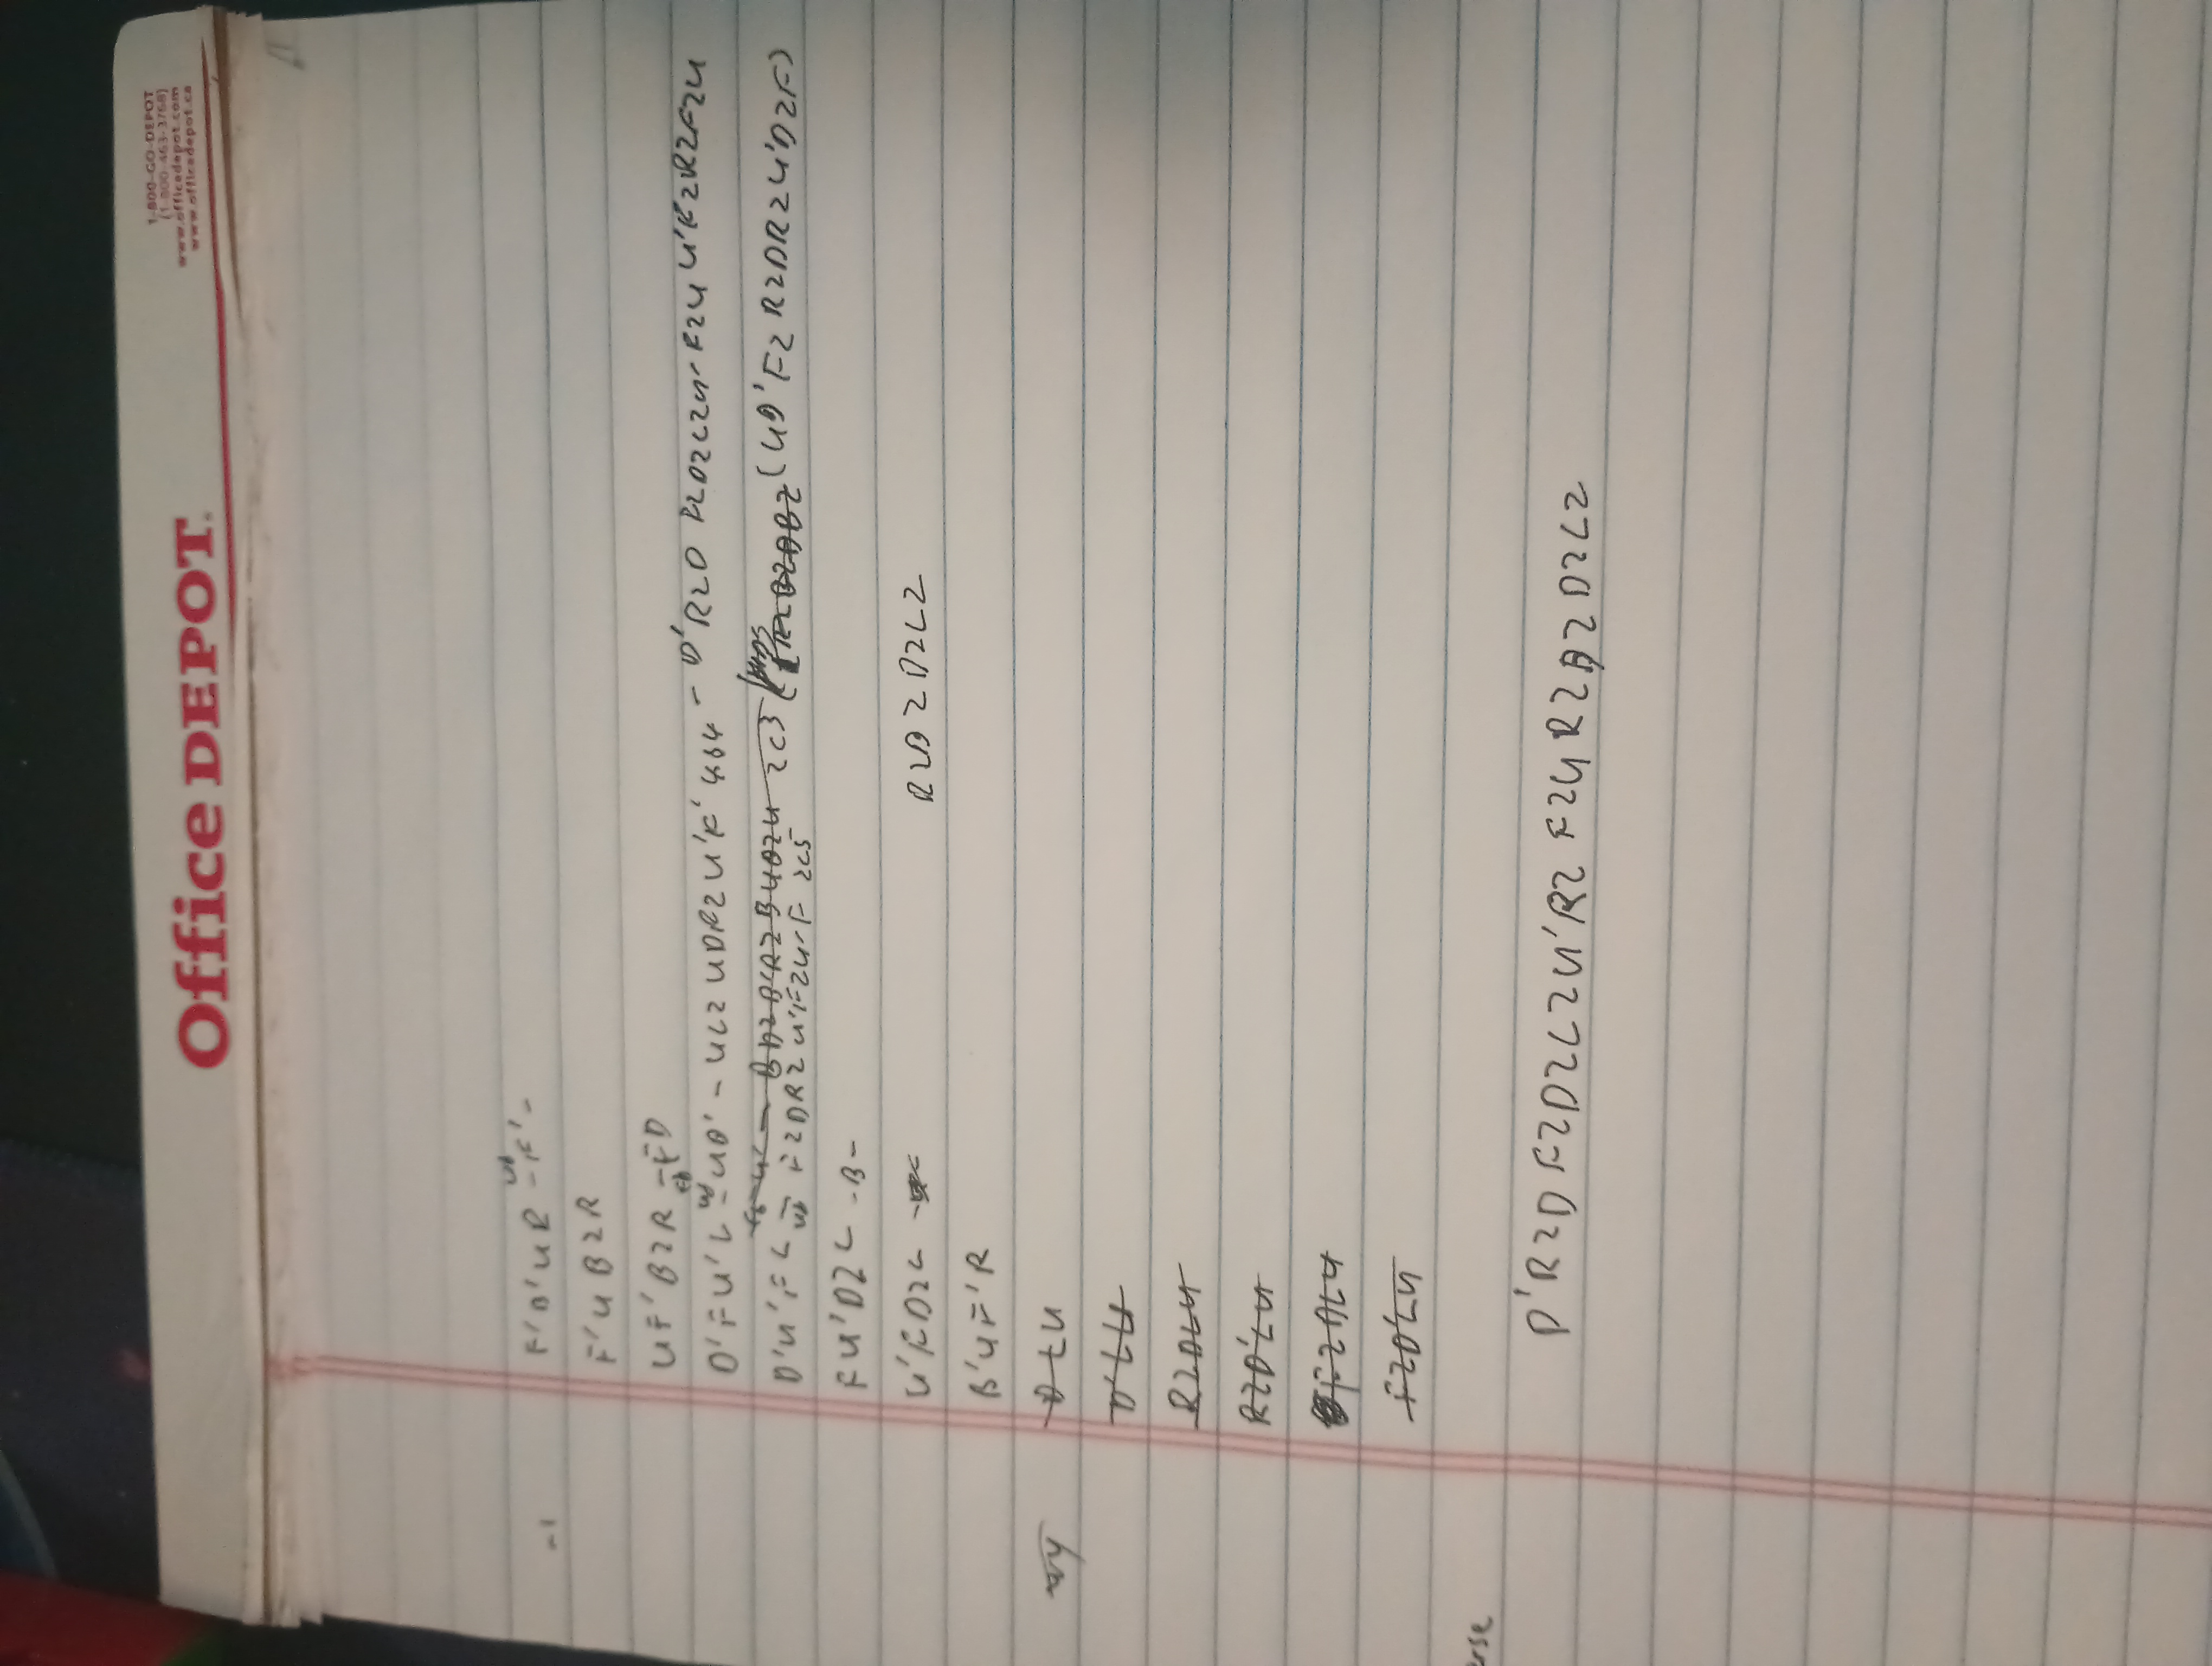 Office DEPOT.
1-800-GO-DEPOT
(1-800-463-3768)
www.officedepot.com
www.officedepot.ca
-1
F'D'UR - F' -
F'UB2R
UF'B2R - FD
D'FU'L - UD' - UL2 UDR2U'F' 4b4 - D'R2D F2D2L2U' F2U U'F2R2F2U
B D2B'R2BUD2U 2c3
D'U'FL F2DR2U'F2U'F 2c5 (UD'F2R2DR2U'D2F)
FU'D2L - B -
U'FD2L - R2D2D2L2
B'UF'R
DLU
D'LU
R2DLU
R2D'LU
F2DLU
F2D'LU
D'R2DF2D2L2U'R2F2UR2D2D2L2